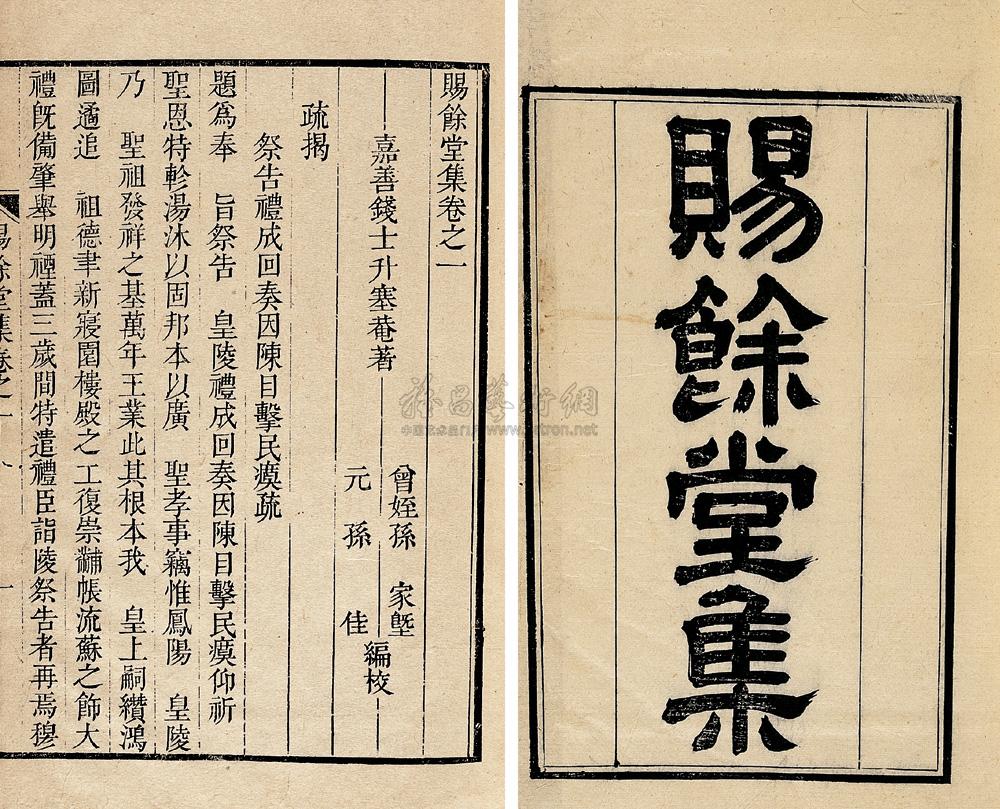 賜餘堂集
賜餘堂集卷之一
嘉善錢士升塞菴著
曾姪孫 家塈
元孫 佳
編校
疏揭
祭告禮成回奏因陳目擊民瘼疏
題爲奉 旨祭告 皇陵禮成回奏因陳目擊民瘼仰祈
聖恩特軫湯沐以固邦本以廣 聖孝事竊惟鳳陽 皇陵
乃 聖祖發祥之基萬年王業此其根本我 皇上嗣纘鴻
圖遹追 祖德聿新寢園樓殿之工復崇黼帳流蘇之飾大
禮旣備肇舉明禋蓋三歲間特遣禮臣詣陵祭告者再焉穆
賜餘堂集卷之一
一
www.artron.net